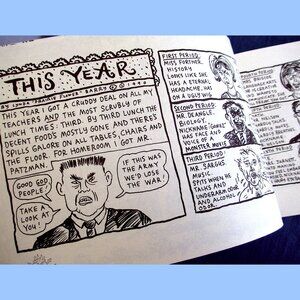 THIS YEAR
BY LYNDA
BARRY © 1990
THIS YEAR I GOT A CRUDDY DEAL ON ALL MY
TEACHERS AND THE MOST SCRUBLY OF
LUNCH TIMES: THIRD. BY THIRD LUNCH THE
DECENT FOODS MOSTLY GONE AND THERES
SPILLS GALORE ON ALL TABLES, CHAIRS AND
THE FLOOR. FOR HOMEROOM I GOT MR.
PATZMAN.
GOOD GOD
PEOPLE
TAKE A
LOOK AT
YOU!
IF THIS WAS
THE ARMY
WE'D LOSE
THE WAR!
FIRST PERIOD:
MISS FORTNER.
HISTORY.
LOOKS LIKE SHE
HAS A ETERNAL
HEADACHE. HAS
ON A UGLY WIG.
SECOND PERIOD:
MR. DEANGLE.
BIOLOGY.
NICKNAME: GOMEZ.
HAS FACE AND
VOICE OF A
MONSTER MOVIE.
THIRD PERIOD:
MR. SARGUS
MUSIC.
SPITS WHEN HE
TALKS AND
UNDERARM ODOR
AND ALCOHOL
ODOR.
FOURTH PERIOD: